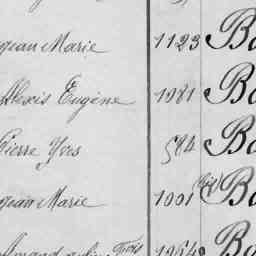 Jean Marie 1123 Ba
Alexis Eugène 1981 Ba
Pierre Yves 584 Ba
Jean Marie 1001 (bis) Ba
Armand 1954 Ba